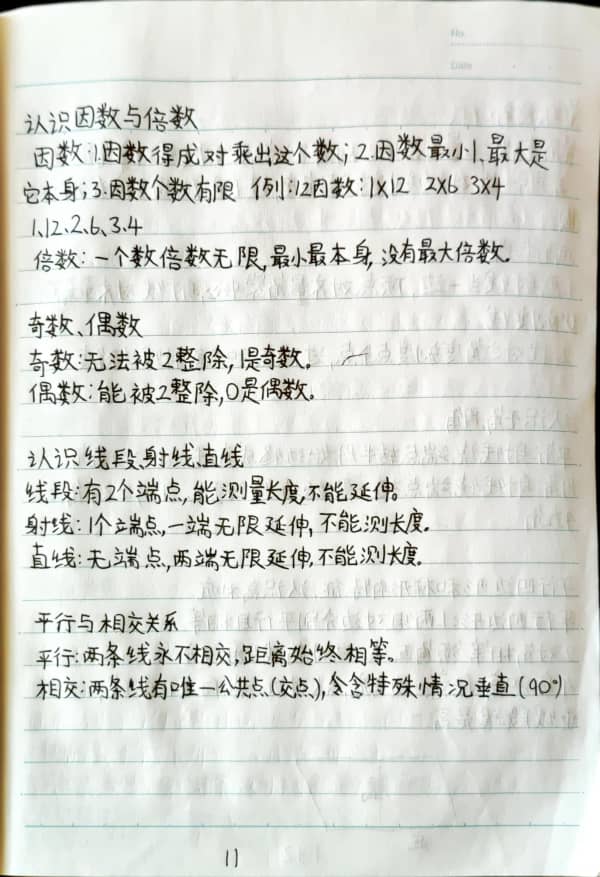 No.
Date
认识因数与倍数
因数:1.因数得成对乘出这个数;2.因数最小1、最大是
它本身;3.因数个数有限 例:12因数:1×12 2×6 3×4
1、12、2、6、3、4
倍数:一个数倍数无限,最小最本身,没有最大倍数。
奇数、偶数
奇数:无法被2整除,1是奇数。
偶数:能被2整除,0是偶数。
认识线段、射线、直线
线段:有2个端点,能测量长度,不能延伸。
射线:1个端点,一端无限延伸,不能测长度。
直线:无端点,两端无限延伸,不能测长度。
平行与相交关系
平行:两条线永不相交,距离始终相等。
相交:两条线有唯一公共点(交点),含特殊情况垂直(90°)
11